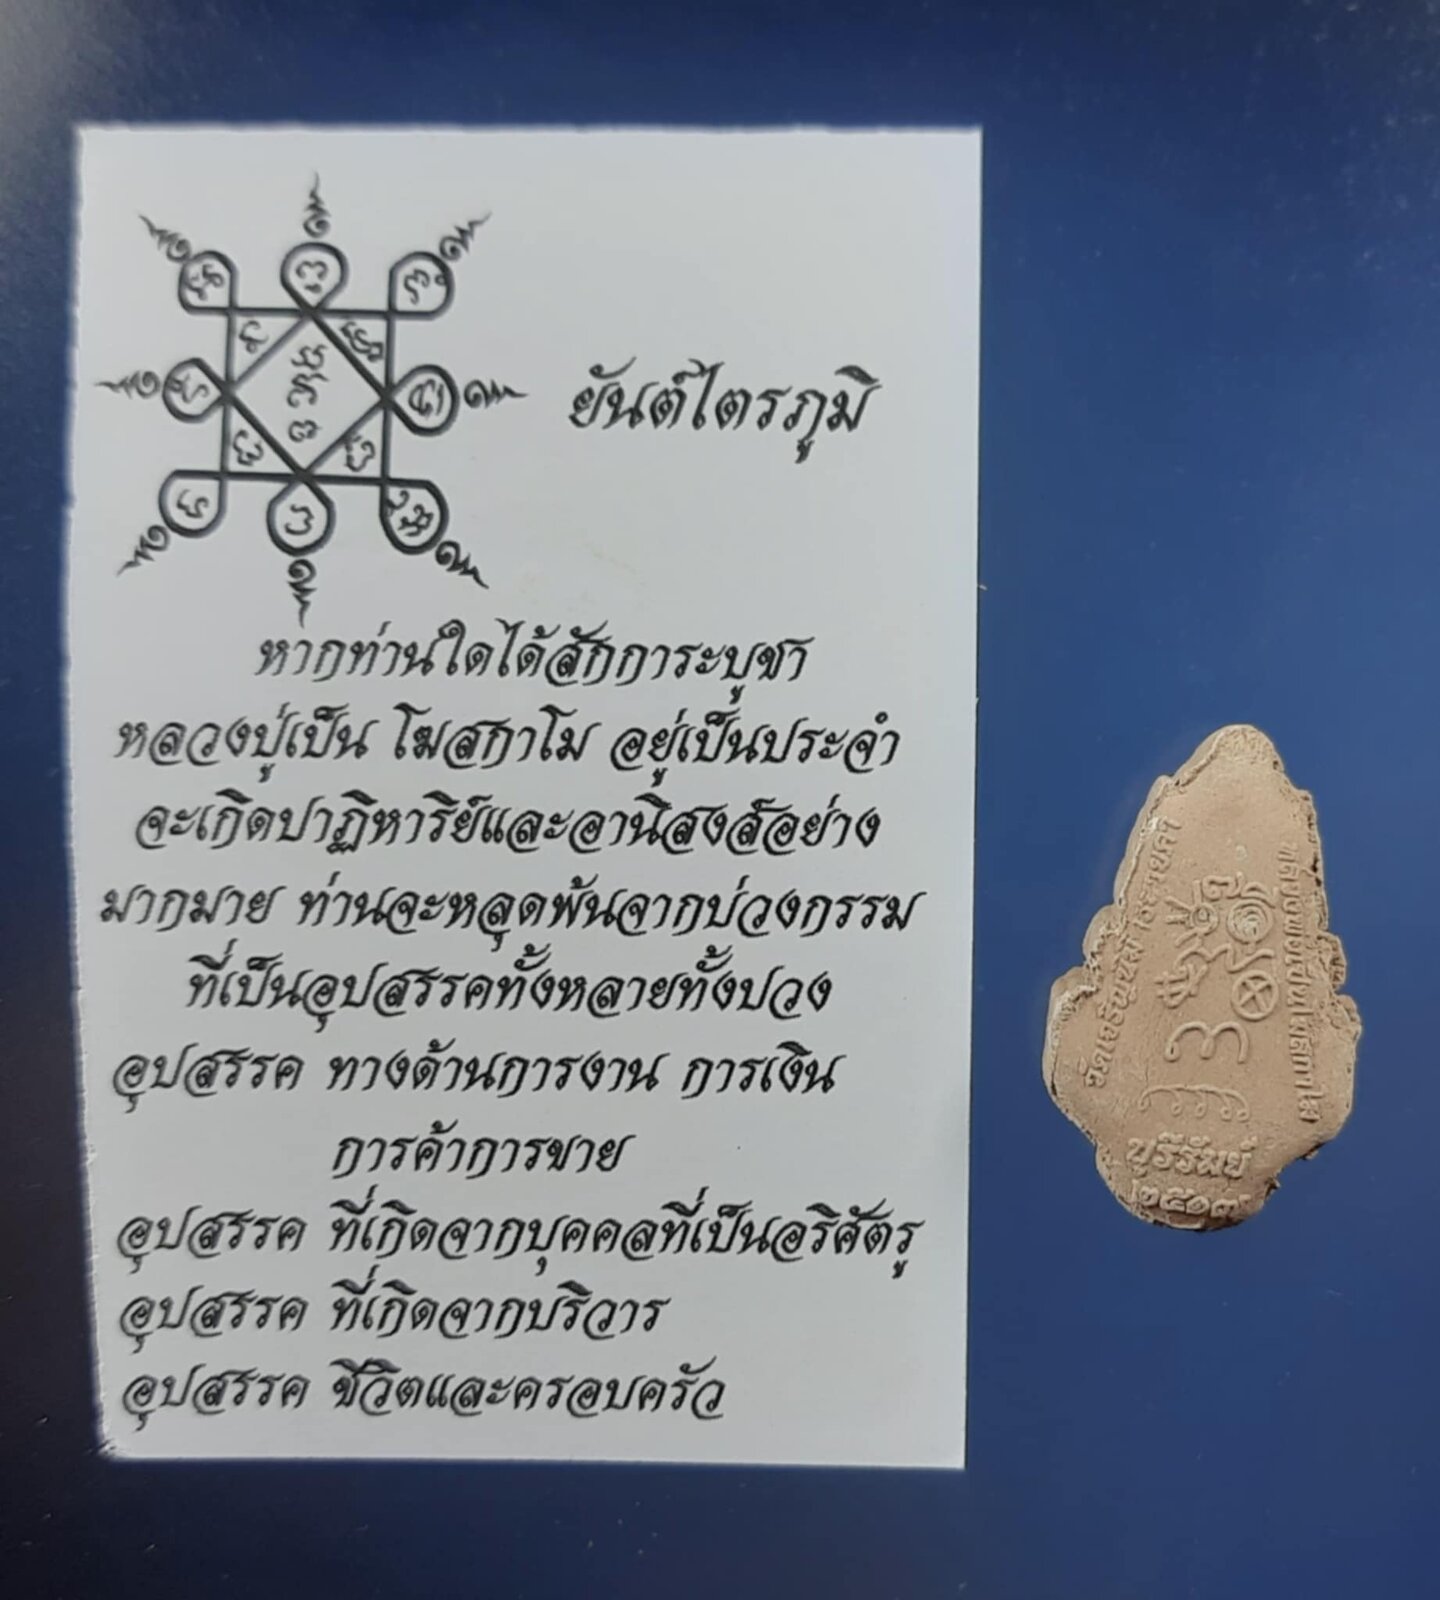 ยันต์ไตรภูมิ
หากท่านใดได้สักการะบูชา
หลวงปู่เป็น โฆสกาโม อยู่เป็นประจำ
จะเกิดปาฏิหาริย์และอานิสงส์อย่าง
มากมาย ท่านจะหลุดพ้นจากบ่วงกรรม
ที่เป็นอุปสรรคทั้งหลายทั้งปวง
อุปสรรค ทางด้านการงาน การเงิน
การค้าการขาย
อุปสรรค ที่เกิดจากบุคคลที่เป็นอริศัตรู
อุปสรรค ที่เกิดจากบริวาร
อุปสรรค ชีวิตและครอบครัว
บุรีรัมย์
๒๕๑๗